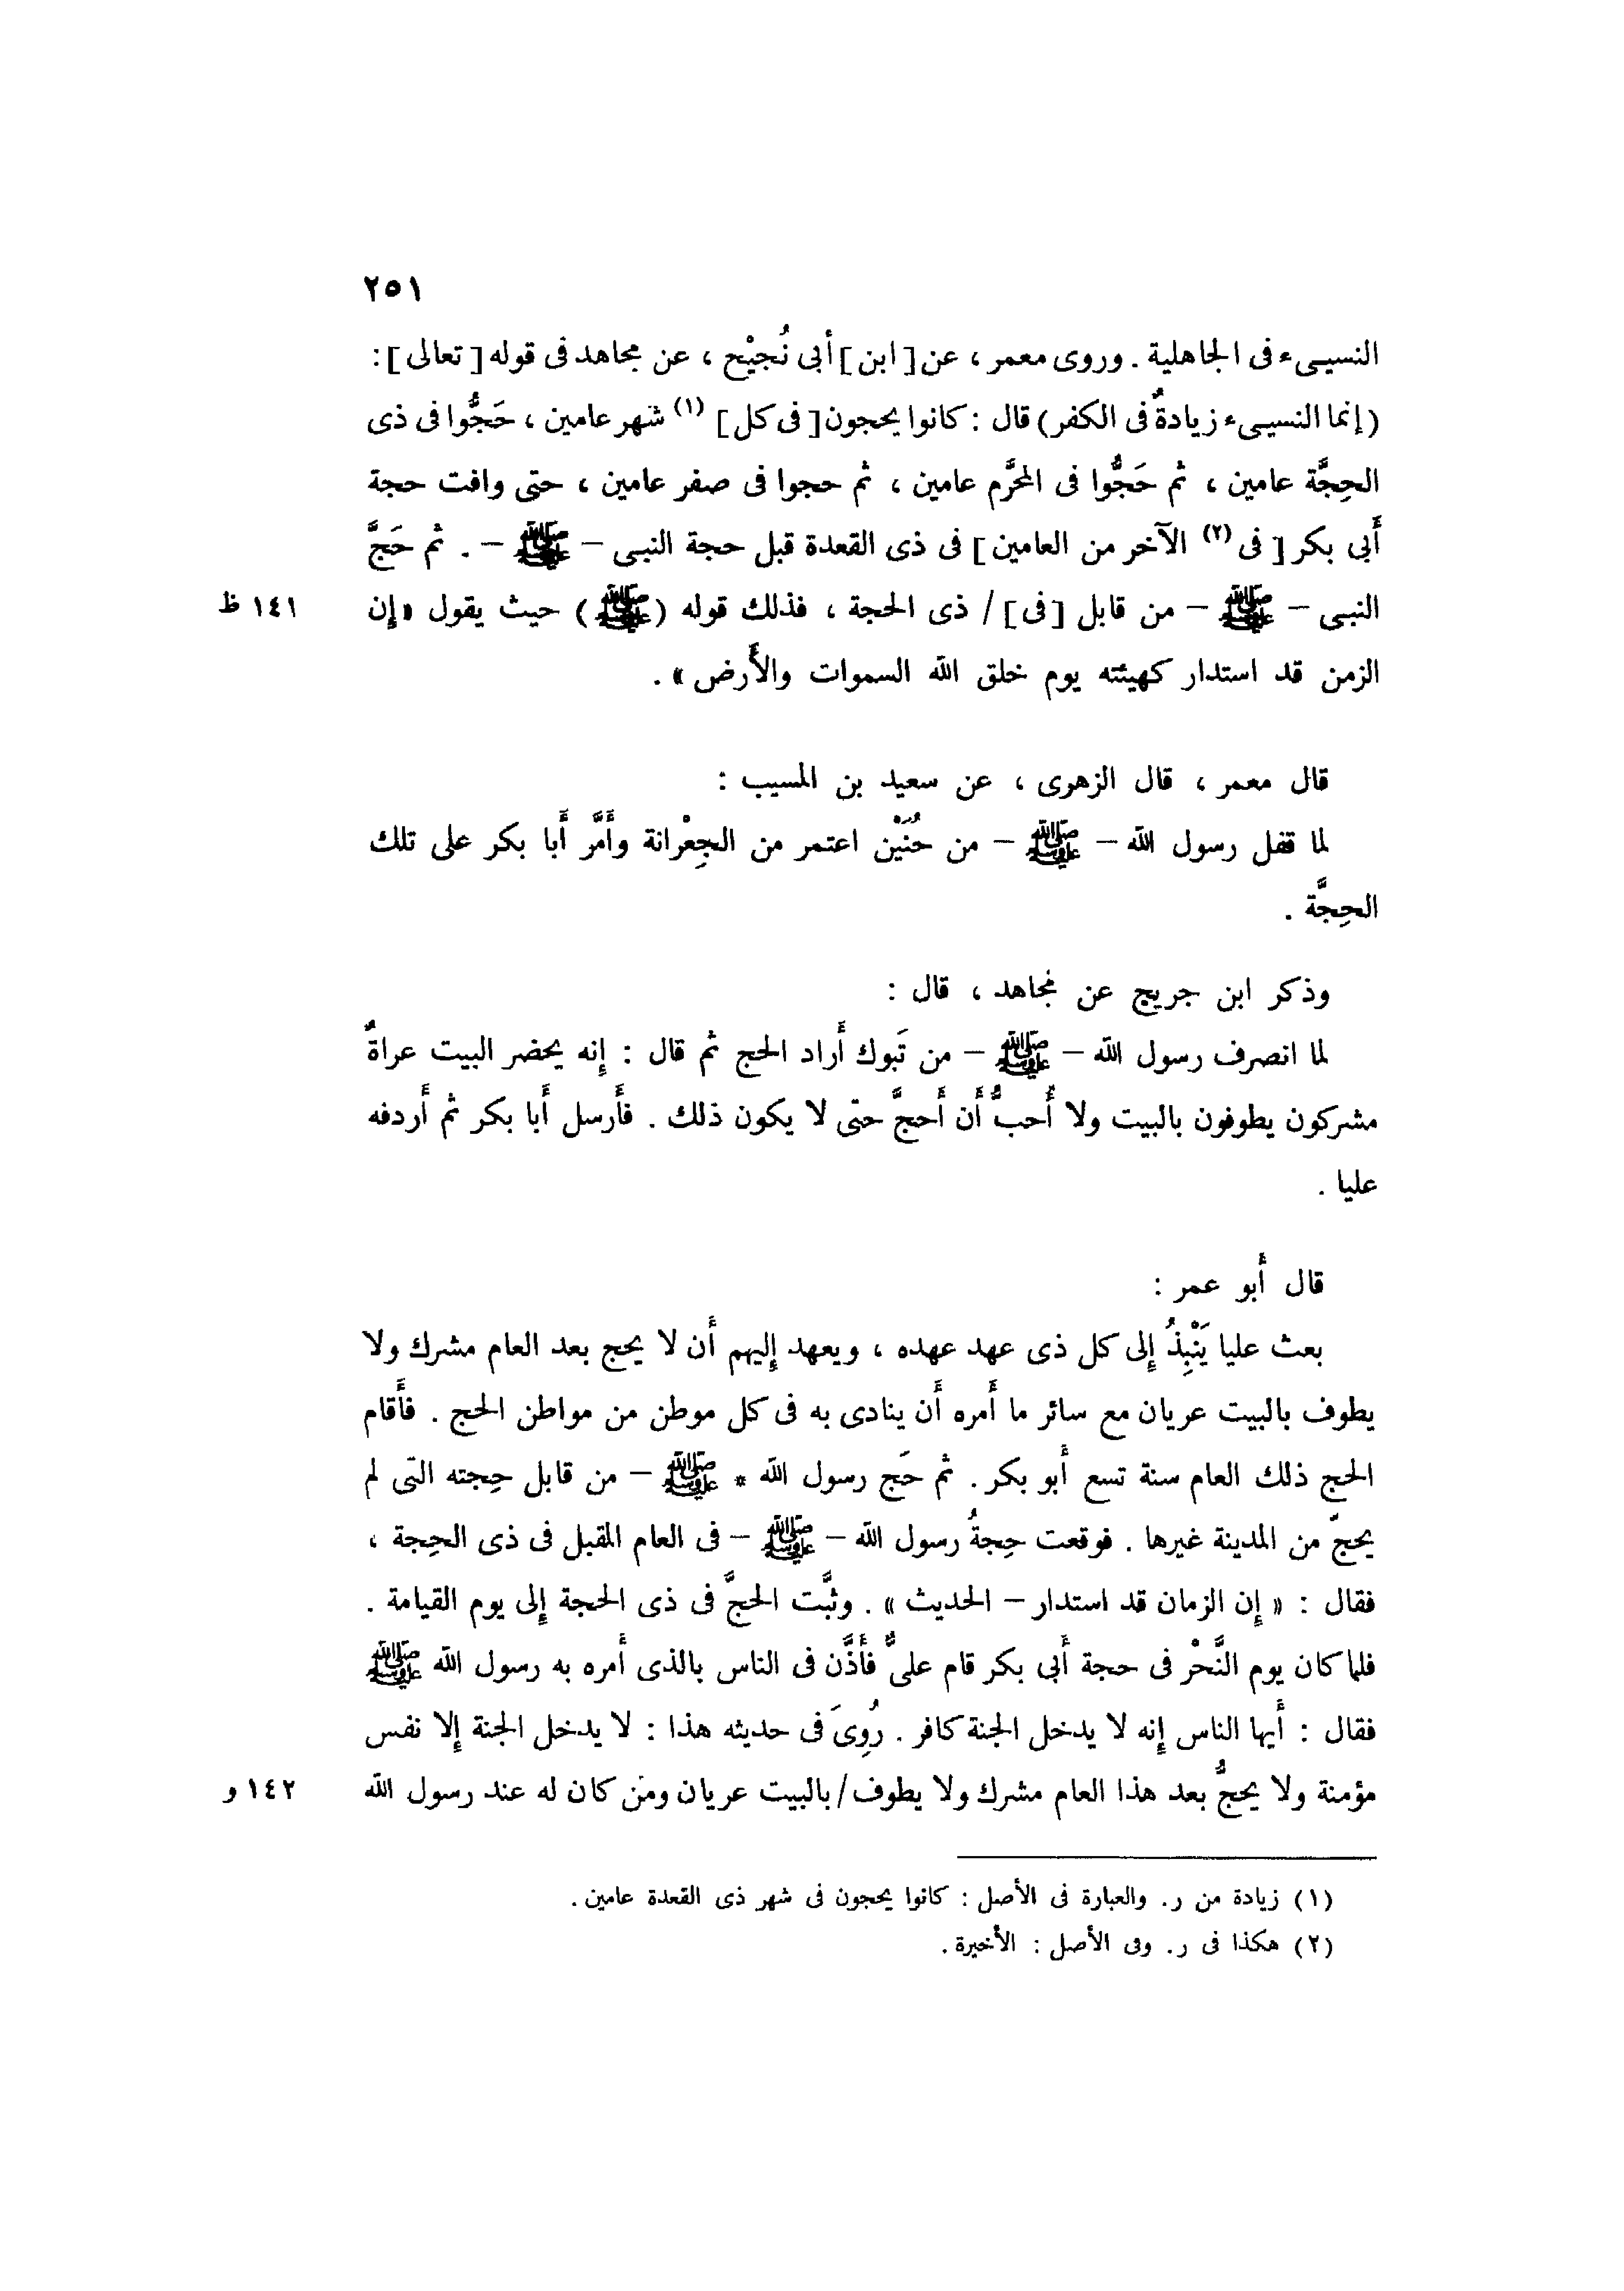 ٢٥١
النسيىء فى الجاهلية . وروى معمر ، عن [ ابن ] أبى نُجيْح ، عن مجاهد فى قوله [ تعالى ] :
( إنما النسيىء زيادةٌ فى الكفر ) قال : كانوا يحجون [ فى كل ] (١) شهر عامين ، حَجُّوا فى ذى
الحِجَّة عامين ، ثم حَجُّوا فى المحرَّم عامين ، ثم حجوا فى صفر عامين ، حتى وافت حجة
أَبى بكر [ فى (٢) الآخر من العامين ] فى ذى القعدة قبل حجة النبى – ﷺ – . ثم حَجَّ
النبى – ﷺ – من قابل [ فى ] / ذى الحجة ، فذلك قوله ( ﷺ ) حيث يقول « إن
١٤١ ظ
الزمن قد استدار كهيئته يوم خلق الله السموات والأَرض » .
قال معمر ، قال الزهرى ، عن سعيد بن المسيب :
لما قفل رسول الله – ﷺ – من حُنَيْن اعتمر من الجِعْرانة وأَمَّر أَبا بكر على تلك
الحِجَّة .
وذكر ابن جريج عن مُجاهد ، قال :
لما انصرف رسول الله – ﷺ – من تَبوك أَراد الحج ثم قال : إنه يحضر البيت عراةٌ
مشركون يطوفون بالبيت ولا أُحبُّ أَن أَحجَّ حتى لا يكون ذلك . فأَرسل أَبا بكر ثم أَردفه
عليا .
قال أَبو عمر :
بعث عليا يَنْبِذُ إلى كل ذى عهد عهده ، ويعهد إليهم أَن لا يحج بعد العام مشرك ولا
يطوف بالبيت عريان مع سائر ما أَمره أَن ينادى به فى كل موطن من مواطن الحج . فأَقام
الحج ذلك العام سنة تسع أَبو بكر . ثم حَج رسول الله * ﷺ – من قابل حِجته التى لم
يحجّ من المدينة غيرها . فوقعت حِجةُ رسول الله – ﷺ – فى العام المقبل فى ذى الحِجة ،
فقال : « إن الزمان قد استدار – الحديث » . وثبَّت الحجَّ فى ذى الحجة إلى يوم القيامة .
فلما كان يوم النَّحْر فى حجة أَبى بكر قام علىٌّ فأَذَّن فى الناس بالذى أَمره به رسول الله ﷺ
فقال : أَيها الناس إنه لا يدخل الجنة كافر . رُوِىَ فى حديثه هذا : لا يدخل الجنة إلا نفس
مؤمنة ولا يحجُّ بعد هذا العام مشرك ولا يطوف / بالبيت عريان ومن كان له عند رسول الله
١٤٢ و
(١) زيادة من ر. والعبارة فى الأصل : كانوا يحجون فى شهر ذى القعدة عامين .
(٢) هكذا فى ر. وفى الأصل : الأخيرة .